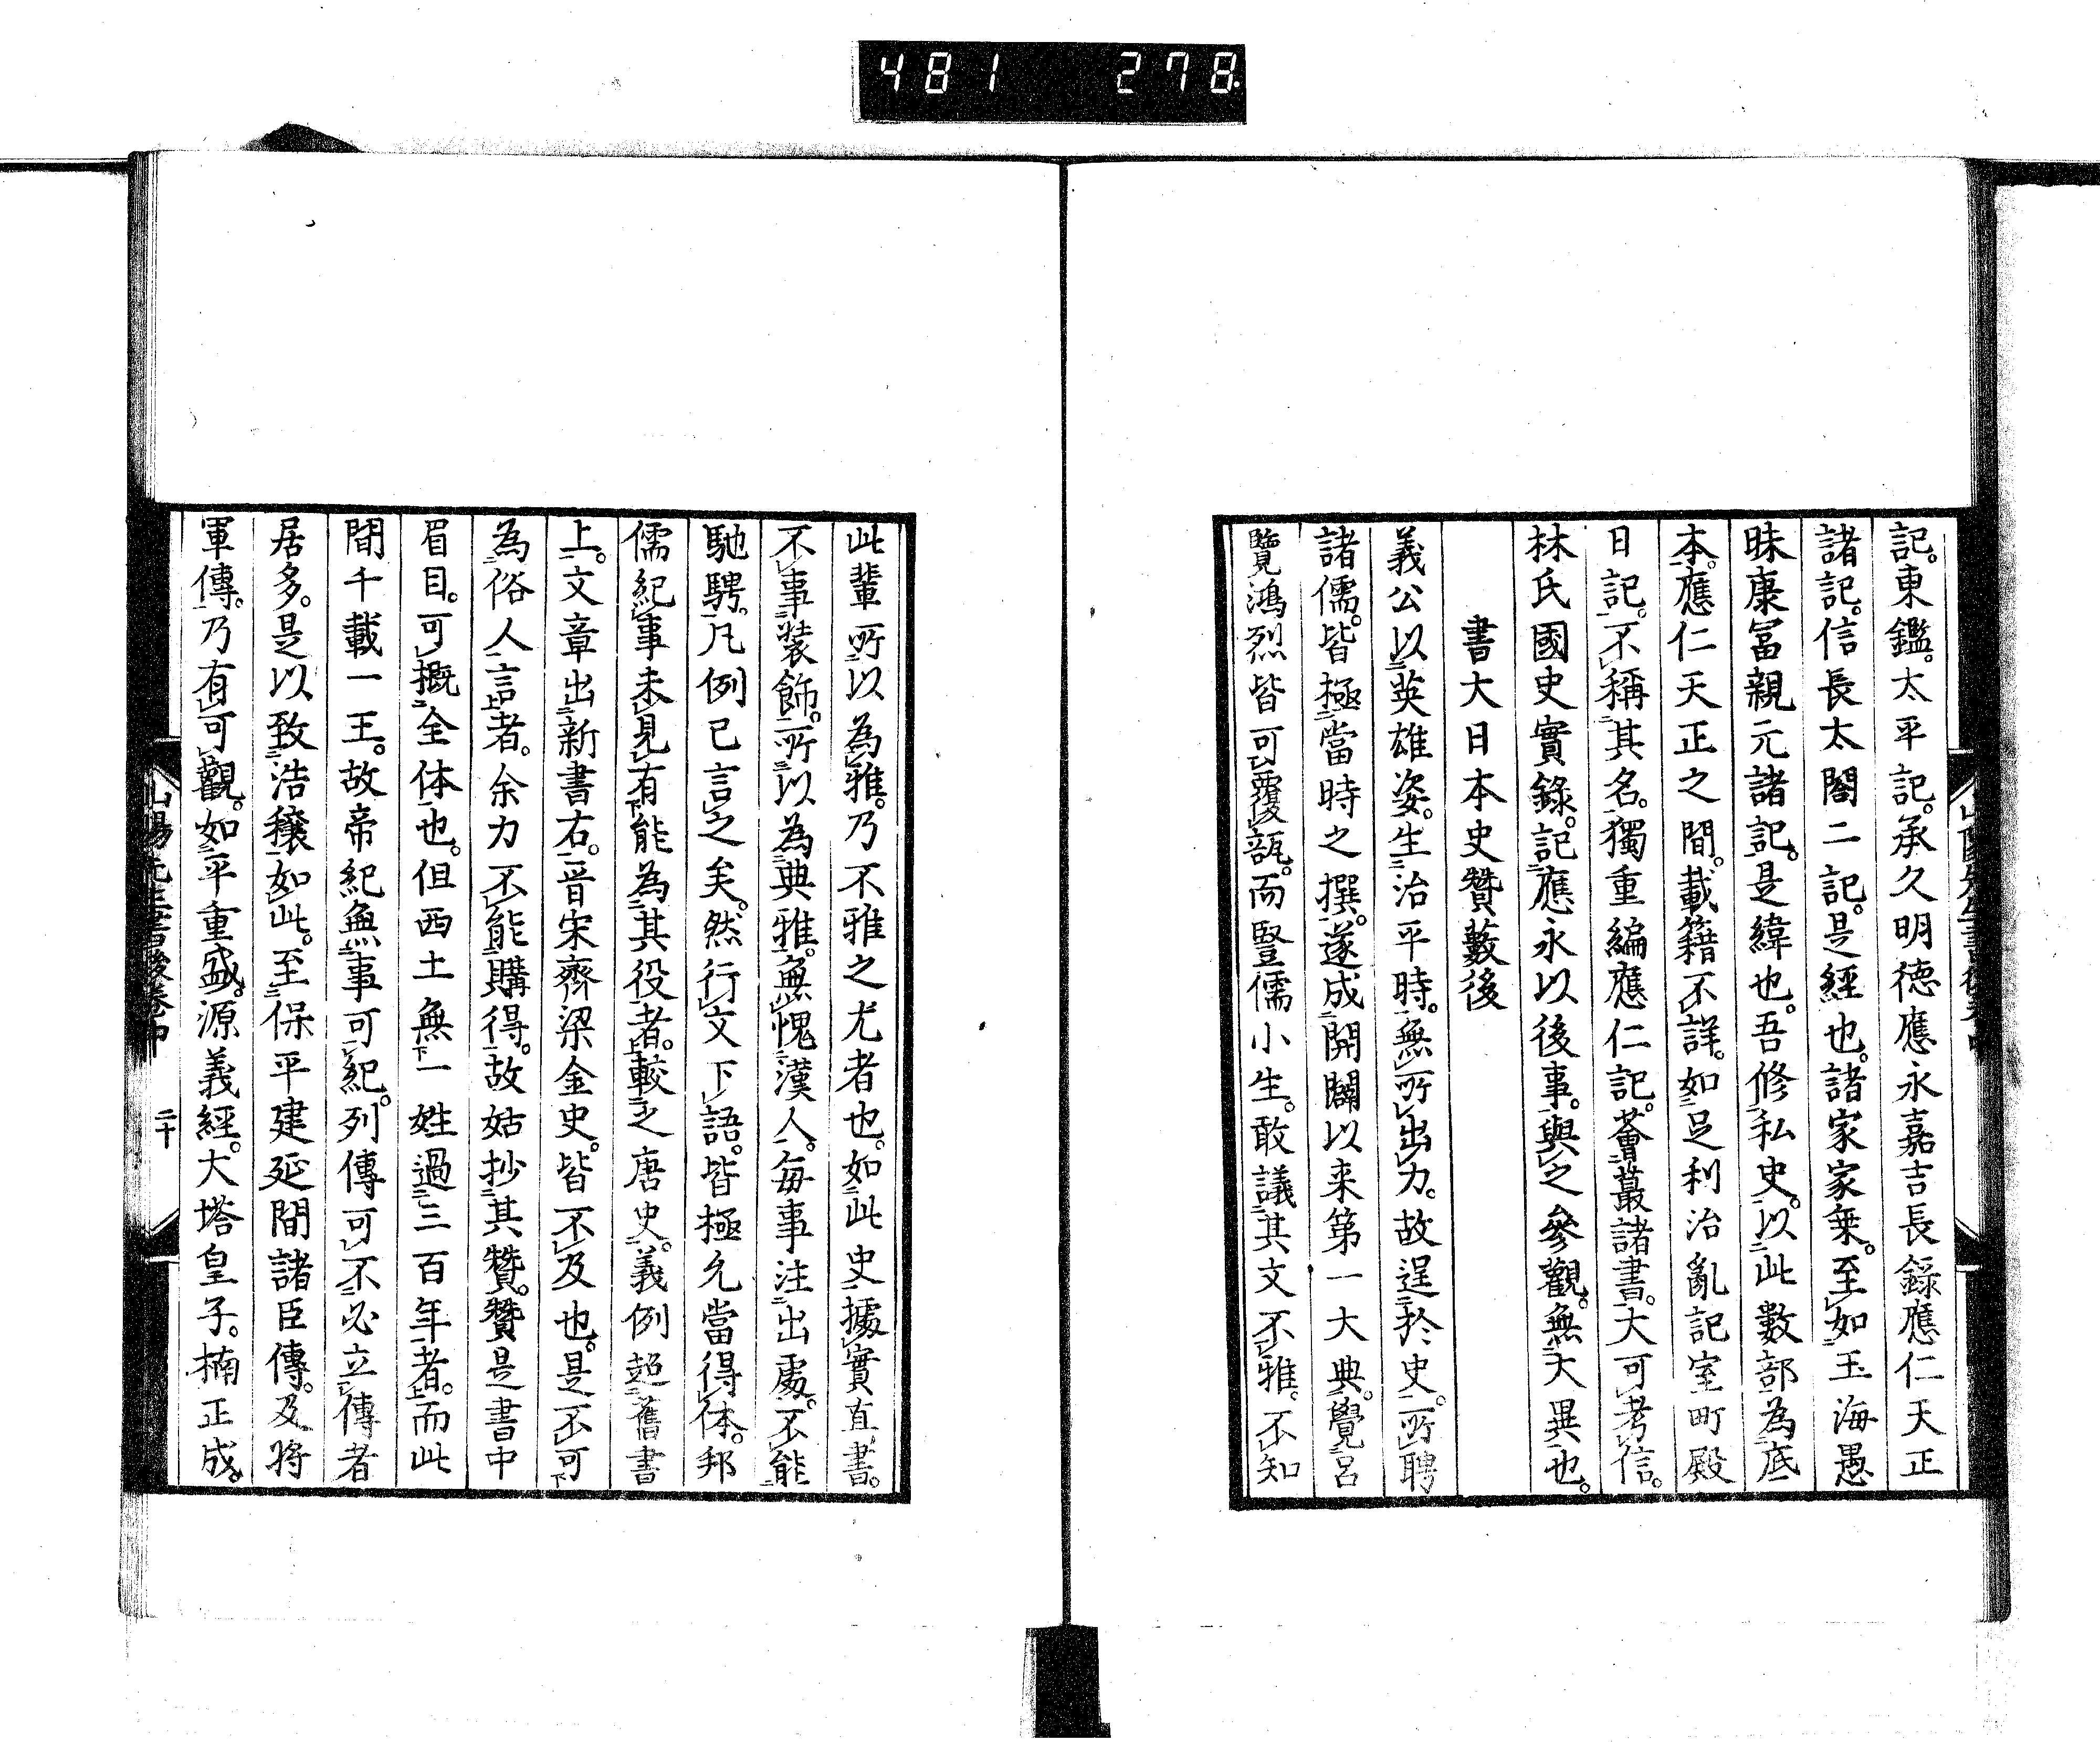 481 278
記。東鑑。太平記。承久明德應永嘉吉長錄應仁天正
諸記。信長太閤二記。是經也。諸家家乗。至如玉海愚
昧康冨親元諸記。是緯也。吾修私史。以此數部為底
本。應仁天正之間。載籍不詳。如足利治亂記室町殿
日記。不稱其名。獨重編應仁記。薈蕞諸書。大可考信。
林氏國史實錄。記應永以後事。與之參觀。無大異也。
書大日本史贊藪後
義公以英雄姿。生治平時。無所出力。故逞於史。所聘
諸儒。皆極當時之撰。遂成開闢以来第一大典。覺呂
覽鴻烈皆可覆瓿。而豎儒小生。敢議其文不雅。不知
此輩所以為雅。乃不雅之尤者也。如此史據實直書。
不事裝飾。所以為典雅。無愧漢人。每事注出處。不能
馳騁。凡例已言之矣。然行文下語。皆極允當得体。邦
儒紀事未見有能為其役者。較之唐史。義例超舊書
上。文章出新書右。晋宋齊梁金史。皆不及也。是不可
為俗人言者。余力不能購得。故姑抄其贊。贊是書中
眉目。可概全体也。但西土無一姓過三百年者。而此
間千載一王。故帝紀無事可紀。列傳可不必立傳者
居多。是以致浩穰如此。至保平建延間諸臣傳。及将
軍傳。乃有可觀。如平重盛。源義經。大塔皇子。楠正成。
山陽先生書後卷中 二十